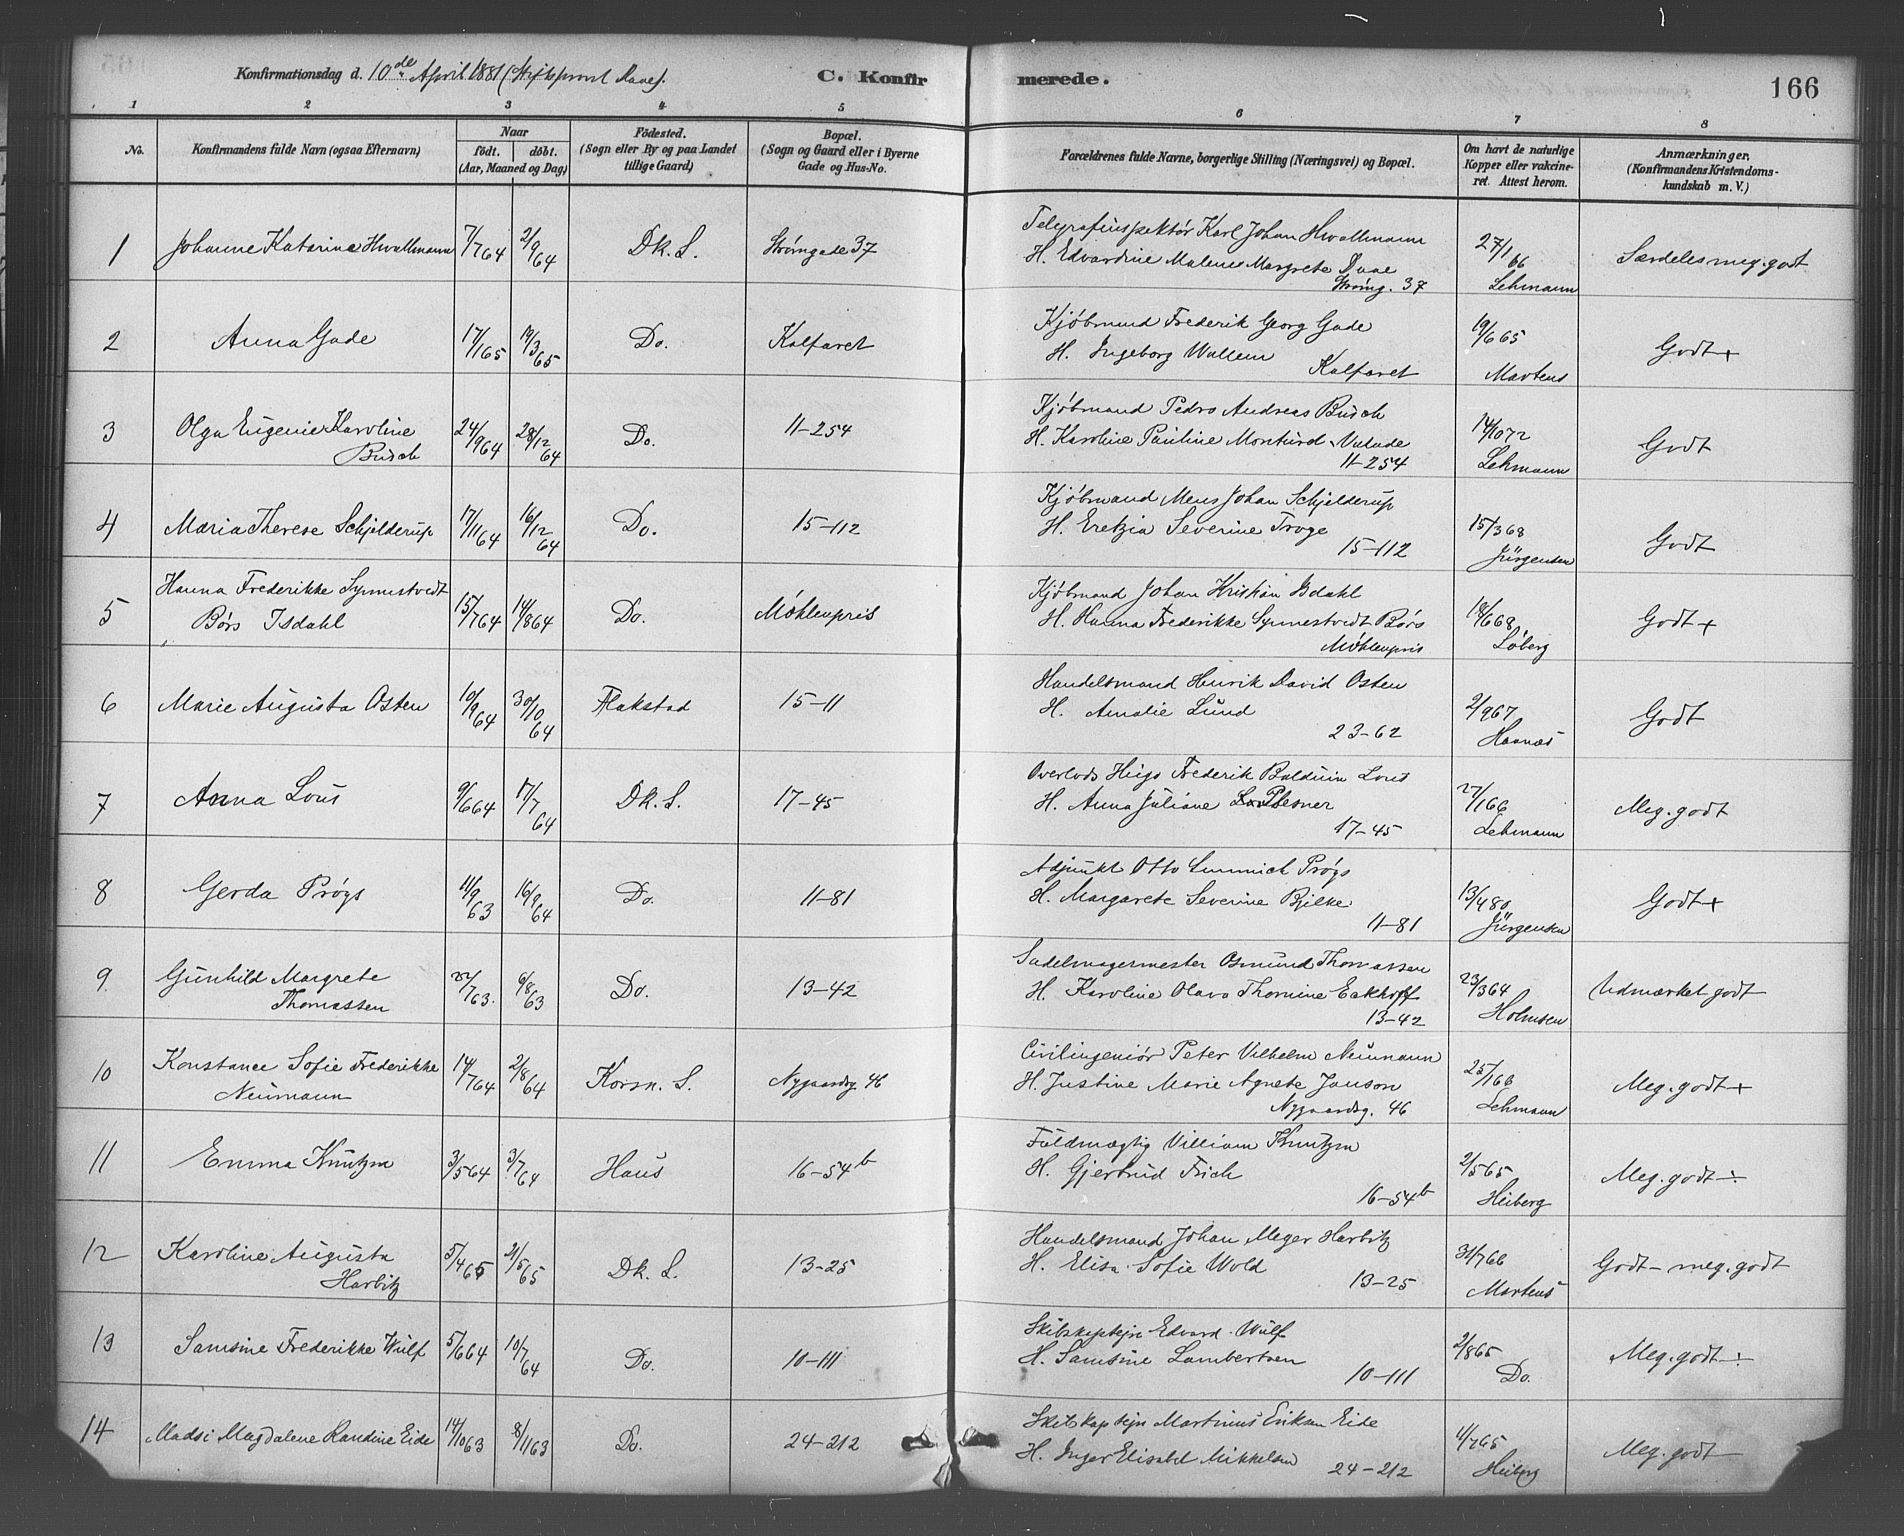 166
Konfirmationsdag d. 10de April 1881 (Stiftsprovst Daae). C. Konfirmerede.
1 2 3 4 5 6 7 8
No. Konfirmandens fulde Navn (ogsaa Efternavn) Naar födt. döbt. (Aar, Maaned og Dag) Födested. (Sogn eller By og paa Landet tillige Gaard) Bopæl. (Sogn og Gaard eller i Byerne Gade og Hus-No. Forældrenes fulde Navne, borgerlige Stilling (Næringsvei) og Bopæl. Om havt de naturlige Kopper eller vakcineret. Attest herom. Anmærkninger, (Konfirmandens Kristendomskundskab m. V.)
1 Johanne Katarina Hwallmann 7/7 64 2/9 64 Dk. S. Strömgade 37
Telegrafinspektör Karl Johan Hwallmann
H. Edvardine Malene Margrete Daae
Strömg. 37
27/1 66 Lehmann Særdeles meg. godt
2 Anna Gade 17/1 65 19/3 65 Do. Kalfaret
Kjöbmand Frederik Georg Gade
H. Ingeborg Wallem
Kalfaret
19/6 65 Martens Godt +
3 Olga Eugenie Karoline Busch 24/9 64 28/12 64 Do. 11-254
Kjöbmand Pedro Andreas Busch
H. Karoline Pauline
11-254
14/10 72 Lehmann Godt
4 Maria Therese Schjelderup 17/11 64 16/12 64 Do. 15-112
Kjöbmand Mens Johan Schjelderup
H. Eretzia Severine Troge
15-112
15/3 68 Jürgensen Godt
5 Hanna Frederikke Synnestvedt Börs Isdahl 15/7 64 14/8 64 Do. Möhlenpris
Kjöbmand Johan Kristian Isdahl
H. Hanna Frederikke Synnestvedt Börs
Möhlenpris
18/6 68 Löberg Godt +
6 Marie Augusta Osten 10/9 64 30/10 64 Flakstad 15-11
Handelsmand Henrik David Osten
H. Amalie Lund
23-62
2/9 67 Hannæs Godt
7 Anna Lous 9/6 64 17/7 64 Dk. S. 17-45
Overlods Hugo Frederik Balduin Lous
H. Anna Juliane Plesner
17-45
27/1 66 Lehmann Meg. godt
8 Gerda Pröys 11/9 63 16/9 64 Do. 11-81
Adjunkt Otto Emmich Pröys
H. Margarete Severine Bjelke
11-81
13/4 80 Jürgensen Godt +
9 Gunhild Margrete Thomassen 22/7 63. 6/8 63 Do. 13-42
Sadelmagermester Osmund Thomassen
H. Karoline Olava Thomine Eckhoff
13-42
23/3 64 Holmsen Udmærket godt
10 Konstance Sofie Frederikke Neumann 14/7 64 2/8 64 Korsk. S. Nygaardsg. 46
Civilingeniör Peter Vilhelm Neumann
H. Justine Marie Agnete Janson
Nygaardsg. 46
25/1 66 Lehmann Meg. godt +
11 Emma Knutzen 3/5 64 3/7 64 Haus 16-54b
Fuldmægtig Villiam Knutzen
H. Gjertrud Frich
16-54b
2/5 65 Heiberg Meg. godt ÷
12 Karoline Augusta Harbitz 5/4 65 21/5 65 Dk. S. 13-25
Handelsmand Johan Meyer Harbitz
H. Elisa Sofie Wold
13-25
31/7 66 Martens Godt - meg. godt
13 Samsine Frederikke Wulf 5/6 64 10/7 64 Do. 10-111
Skibskaptejn Edvard Wulf
H. Samsine Lambertsen
10-111
2/8 65 Do. Meg. godt ÷
14 Madsi Magdalene Randine Eide 14/10 63 8/11 63 Do. 24-212
Skibskaptejn Martinus Eriksen Eide
H. Inger Elisabet Mikkelsen
24-212
4/7 65 Heiberg Meg. godt